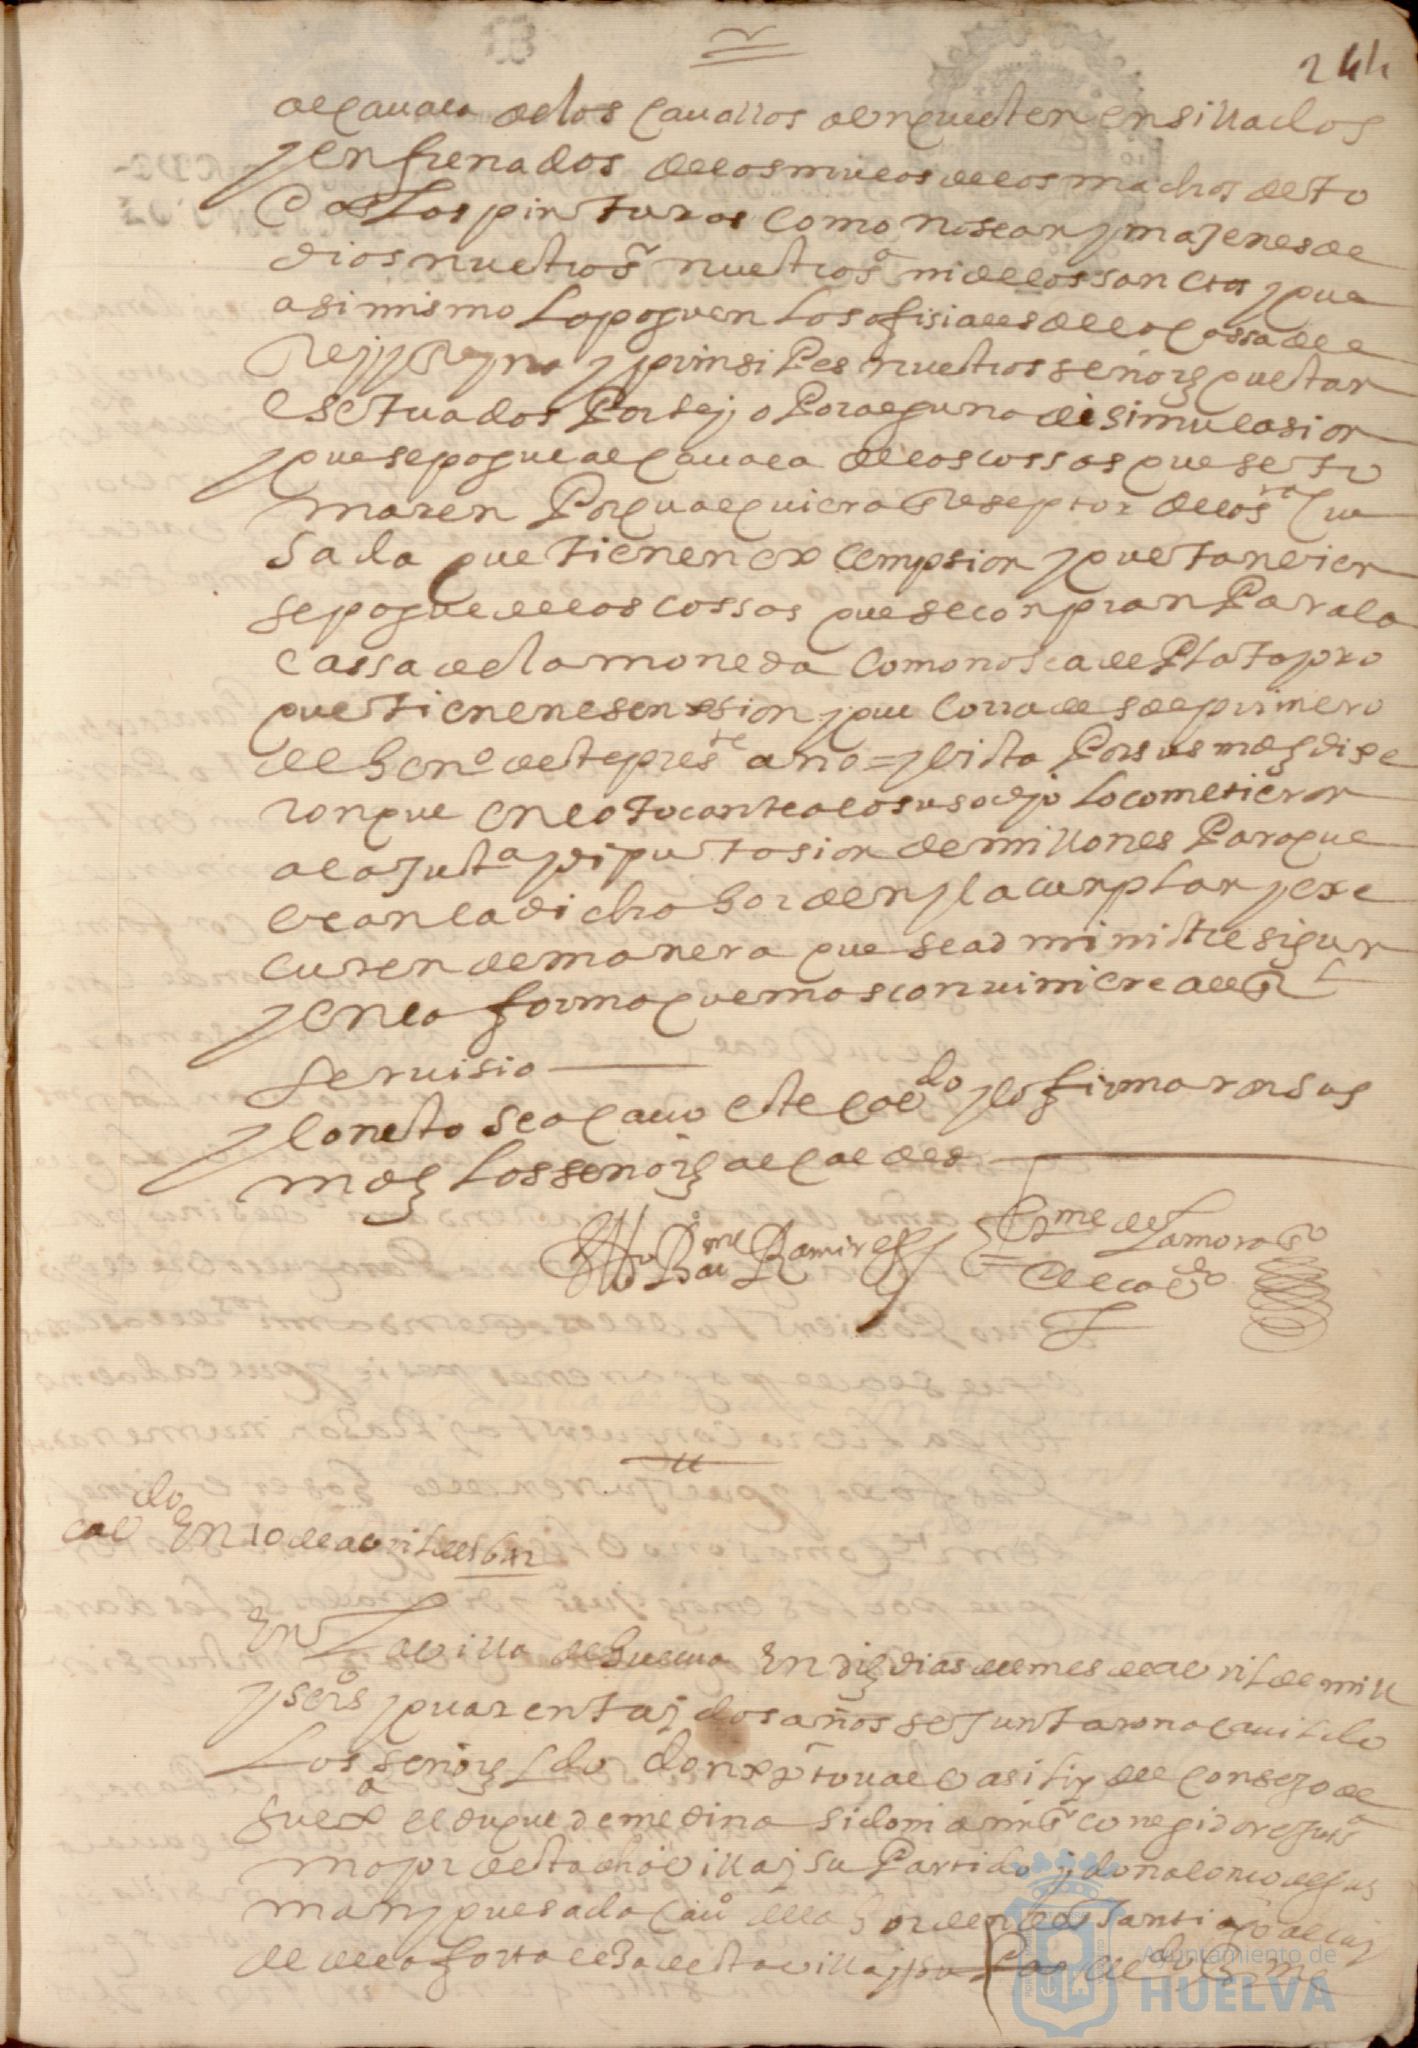 244
alcauala de los cauallos aunque esten ensillados
y enfrenados de los mulos de los machos de to
das las pinturas como no sean ymajenes de
dios nuestro sr ni de los sanctos y que
asi mismo lo paguen los ofisiales de la cassa del
Rey y Reyna y prinsipes nuestros señores questan
esetuados por ley o por alguna disimulasion
y que se pague alcauala de las cossas que se to
maren por qualquiera Reseptor de la sta cru
sada que tienen exempsion y que tanbien
se pague de las cossas que se conpran para la
cassa de la moneda como no sea de plata y oro
que tienen esension y que corra desde primero
de henero deste preste año = y bista por sus mds dixe
ron que en lo tocante a lo susodcho lo cometieron
a la justa y diputasion de millones para que
vean la dicha horden y la cunplan y exe
cuten de manera que se administre sigun
y en la forma que mas conuiniere al Rl
seruisio
y con esto se acauo este cavdo y lo firmaron sus
mds los señores alcaldes
Bme Ramires
Bme de Zamora
del cavdo
cavdo En 10 de abril de 1642
En La villa de huelua En dies dias del mes de abril de mill
y seiss y quarenta y dos años se juntaron a cauildo
Los señores Ldo don xptoual basilis del consejo de
el duque de medina sidonia mi sr corregidor e justa
mayor desta dha villa y su Partido y don alonso de gus
man y quesada cauo de la horden de Santiago alcay
de de la fortalesa desta villa y su Bme
Ayuntamiento de
HUELVA